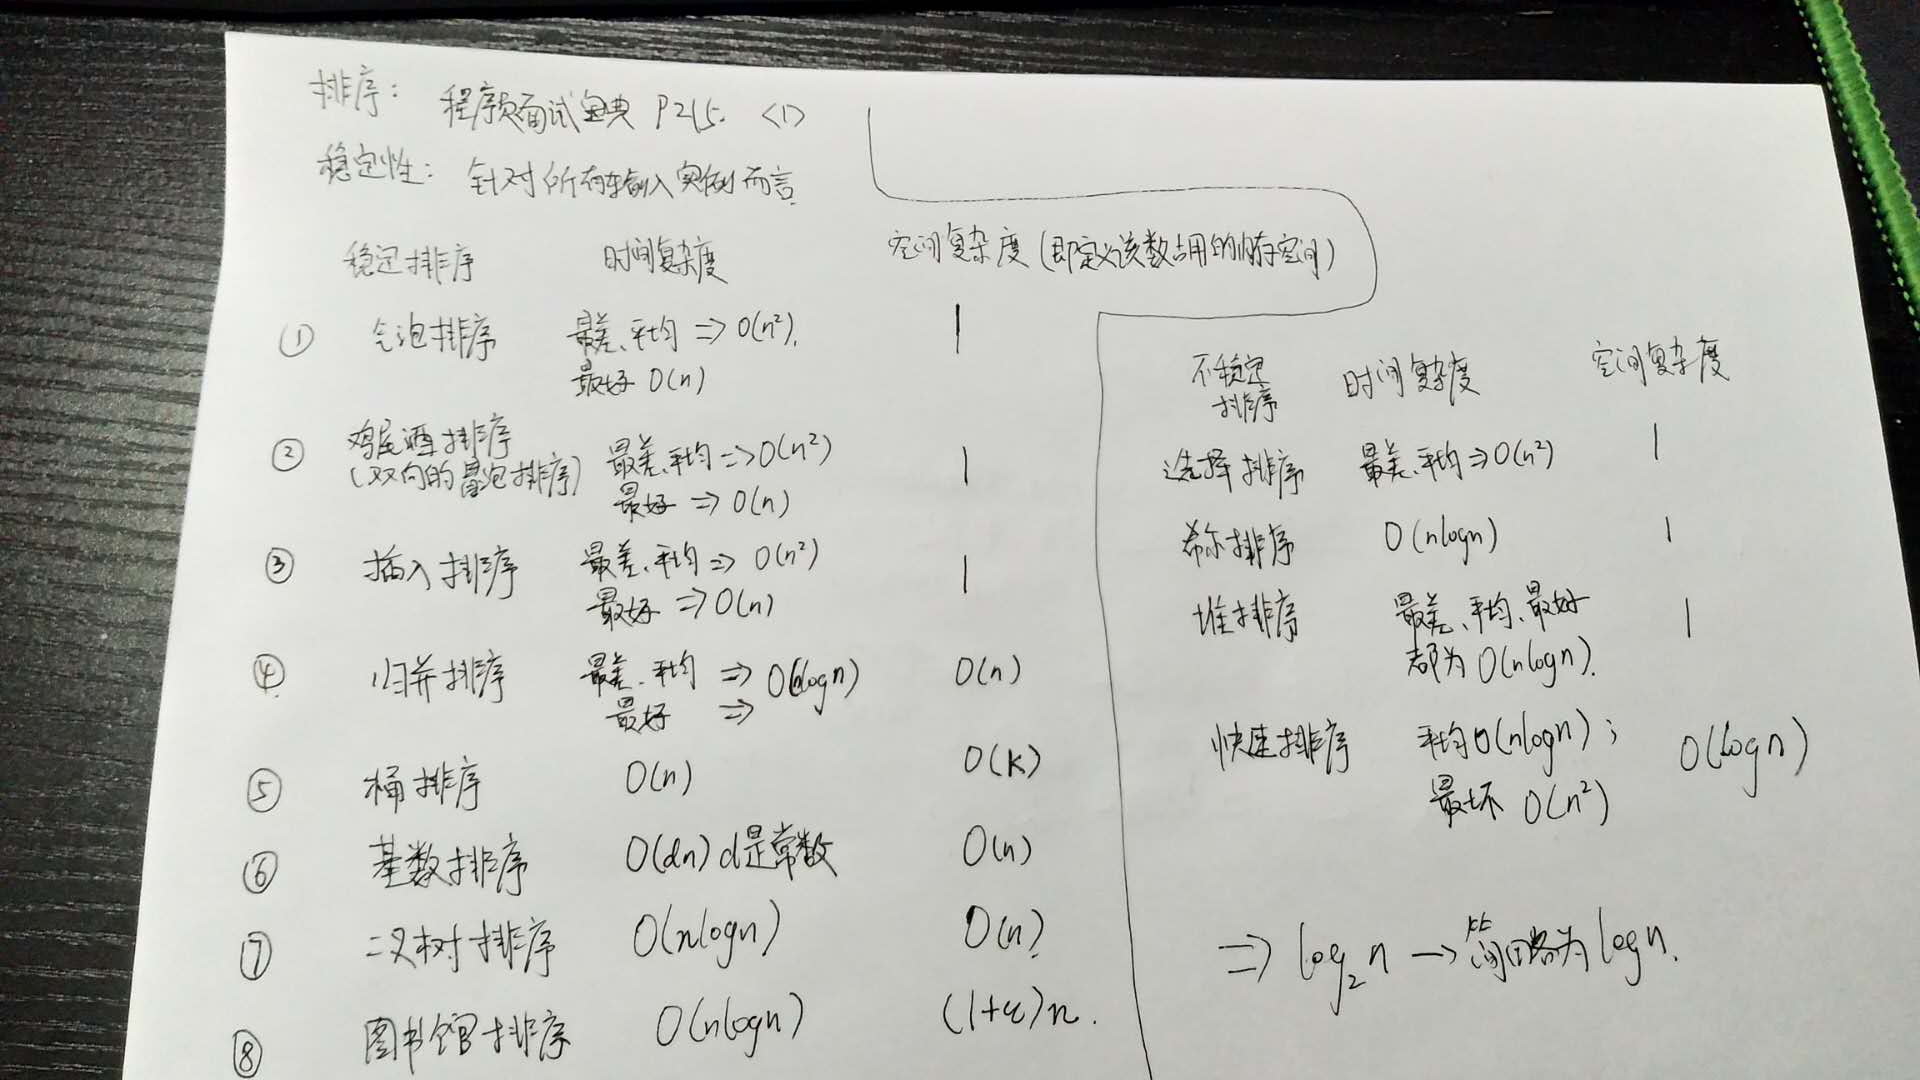 排序： 程序员面试宝典 P215. <1>
稳定性： 针对所有输入实例而言.
稳定排序 时间复杂度 空间复杂度（即定义该数占用的内存空间）
① 冒泡排序 最差、平均 => O(n²). 1
最好 O(n)
② 鸡尾酒排序 最差、平均 => O(n²) 1
（双向的冒泡排序） 最好 => O(n)
③ 插入排序 最差、平均 => O(n²) 1
最好 => O(n)
④ 归并排序 最差、平均 => O(nlogn) O(n)
最好 =>
⑤ 桶排序 O(n) O(k)
⑥ 基数排序 O(dn) d是常数 O(n)
⑦ 二叉树排序 O(nlogn) O(n)
⑧ 图书馆排序 O(nlogn) (1+ε)n.
不稳定 时间复杂度 空间复杂度
排序
选择排序 最差、平均 => O(n²) 1
希尔排序 O(nlogn) 1
堆排序 最差、平均、最好 1
都为 O(nlogn).
快速排序 平均 O(nlogn)； O(logn)
最坏 O(n²)
=> log₂n → 简略为 logn.